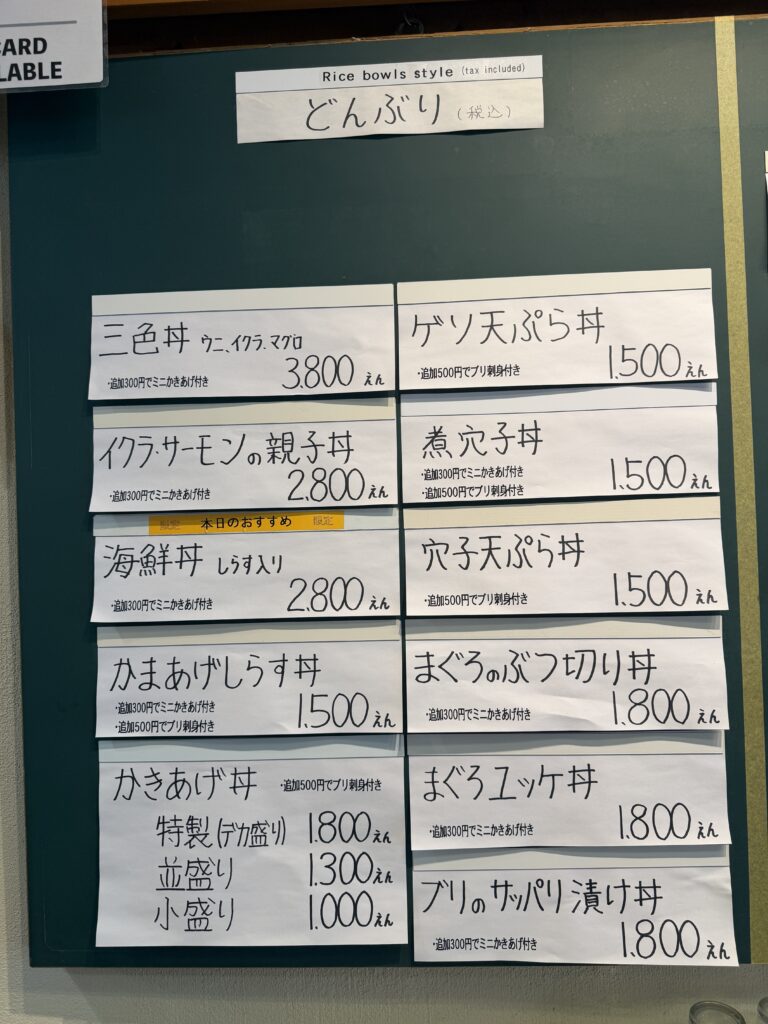 CARD
LABLE
Rice bowls style (tax included)
どんぶり (税込)
三色丼 ウニ、イクラ、マグロ
・追加300円でミニかきあげ付き
3.800 えん
イクラ・サーモンの親子丼
・追加300円でミニかきあげ付き
2.800 えん
限定 本日のおすすめ 限定
海鮮丼 しらす入り
・追加300円でミニかきあげ付き
2.800 えん
かまあげしらす丼
・追加300円でミニかきあげ付き
・追加500円でブリ刺身付き
1.500 えん
かきあげ丼 ・追加500円でブリ刺身付き
特製(デカ盛り) 1.800 えん
並盛り 1.300 えん
小盛り 1.000 えん
ゲソ天ぷら丼
・追加500円でブリ刺身付き
1.500 えん
煮穴子丼
・追加300円でミニかきあげ付き
・追加500円でブリ刺身付き
1.500 えん
穴子天ぷら丼
・追加500円でブリ刺身付き
1.500 えん
まぐろのぶつ切り丼
・追加300円でミニかきあげ付き
1.800 えん
まぐろユッケ丼
・追加300円でミニかきあげ付き
1.800 えん
ブリのサッパリ漬け丼
・追加300円でミニかきあげ付き
1.800 えん